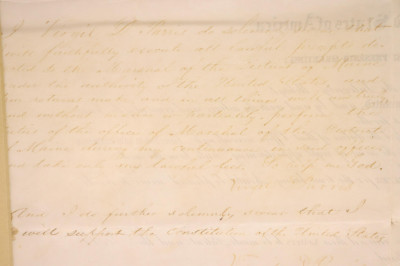 I Virgil D. Parris do solemnly swear that I
will faithfully execute all lawful precepts di-
rected to the Marshal of the District of Maine
under the authority of the United States, and
true returns make, and in all things well and truly
and without malice or partiality, perform the
duties of the office of Marshal of the District
of Maine during my continuance in said office
and take only my lawful fees. So help me God.
And I do further solemnly swear that I
will support the Constitution of the United States